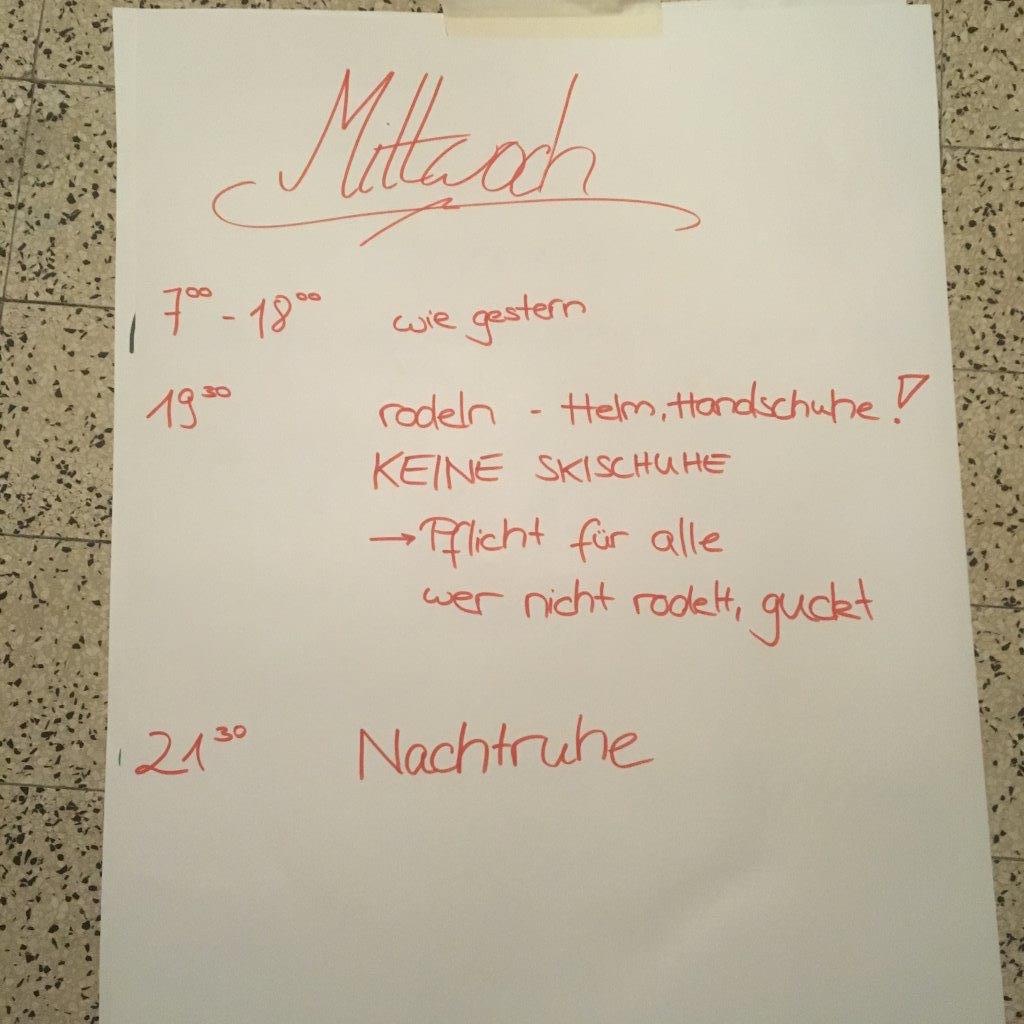 Mittwoch
7⁰⁰ - 18⁰⁰ wie gestern
19³⁰ rodeln - Helm, Handschuhe!
KEINE SKISCHUHE
→ Pflicht für alle
wer nicht rodelt, guckt
21³⁰ Nachtruhe